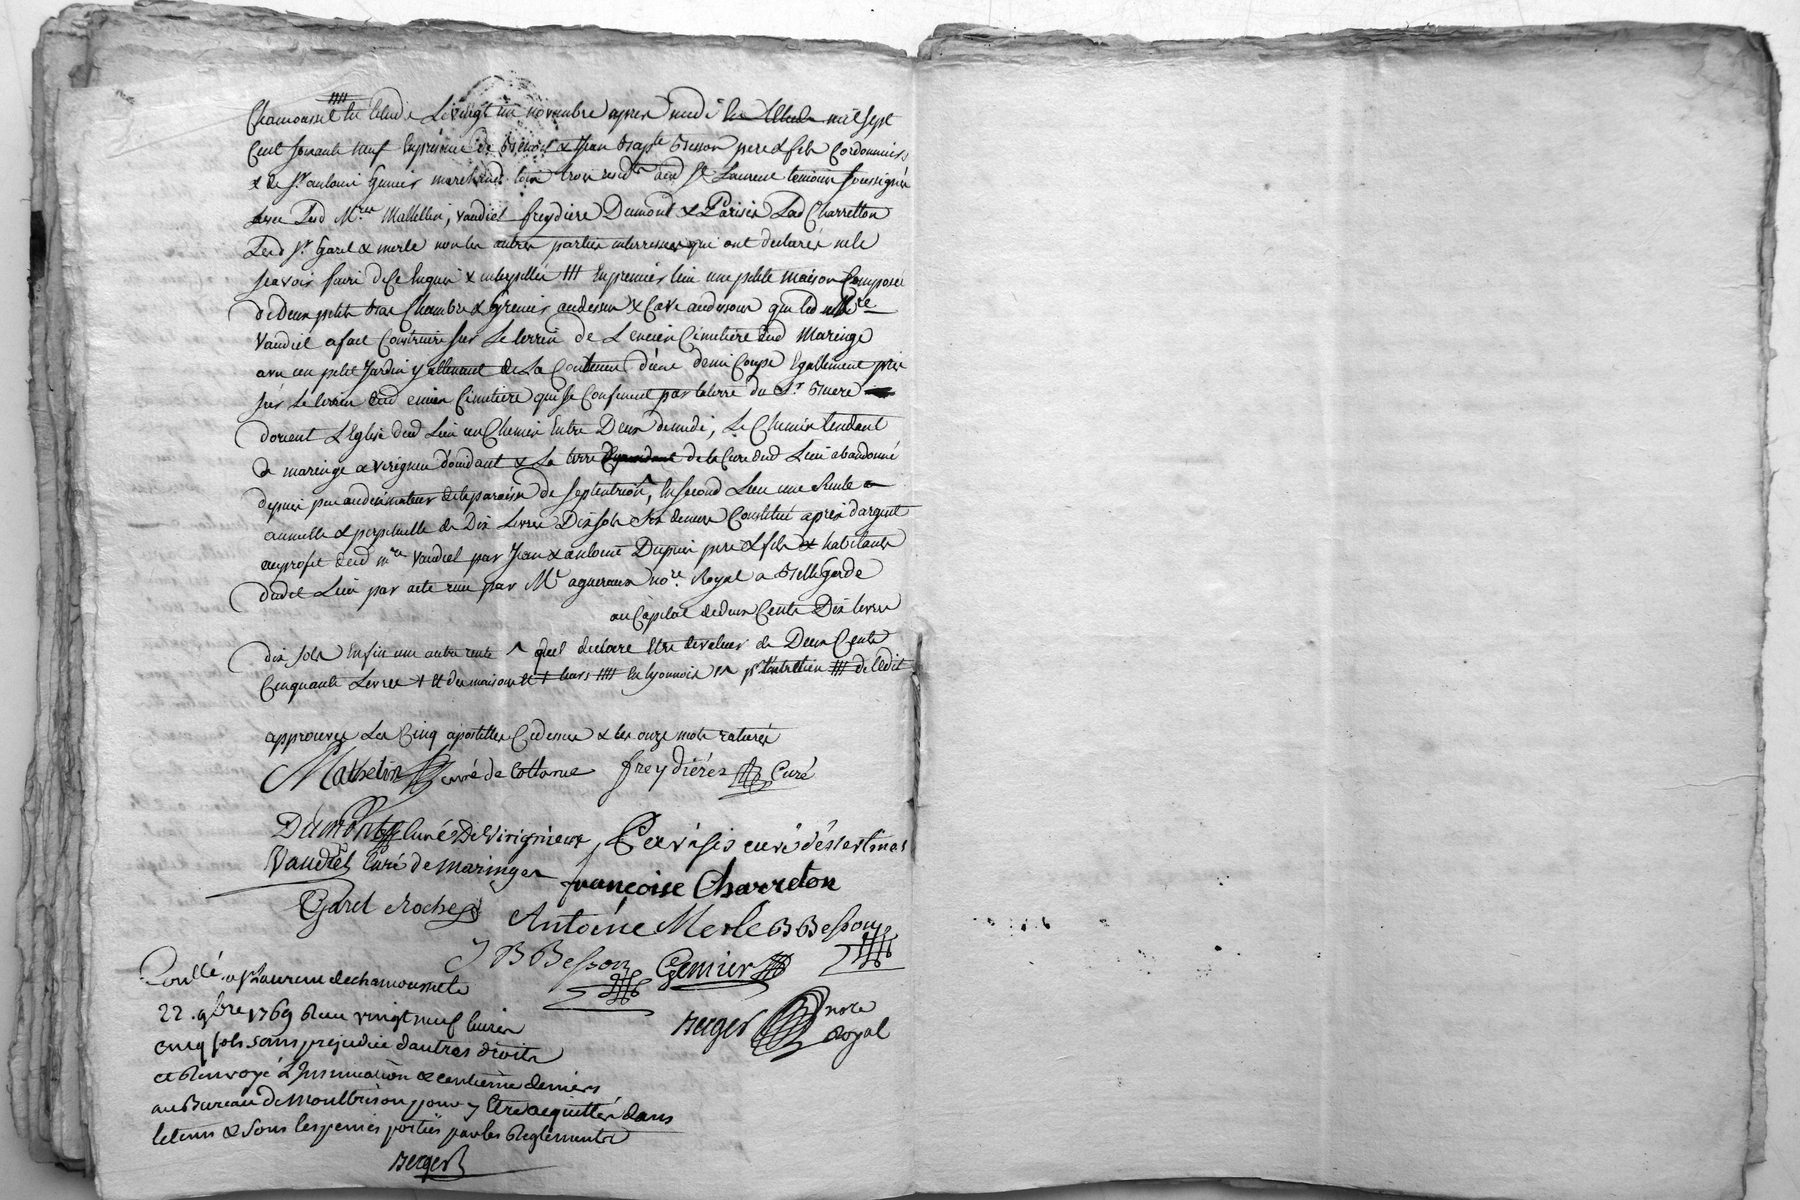 Chamousset le lundi Le vingt un novembre apres midi mil sept
Cent soixante neuf En présence de Benoit & Jean Bapte Besson pere & fils Cordonniers
& de Sr antoine Genier marchand tous trois residts aud St Laurent temoins soussignés
avec Lesd Mres Mathelin, vaudiet freydiere Dumont & Parisis Lad Charretton
Lesd Srs Garel & merle non les autres parties interressées qui ont declarés ne le
scavoir faire de Ce Enquis & interpellés En premier lieu une petite maison Composée
de Deux petits bas Chambre & Grenier audessus & Cave audessous que led Mre
Vaudiet a fait Construire sur Le terrein de L'encien Cimetiere dud Maringe
avec un petit Jardin y attenant de La Contenue d'une demi Coupe Egallement pris
sur Le terrein dud encien Cimetiere qui se Confinent par la terre du Sr
dorient L'Eglise dud Lieu un Chemin Entre Deux de midi, Le Chemin tendant
de maringe a virigneu doccidant & La terre de la Cure dud Lieu abandonné
depuis peu aux décimateurs de la paroisse de Septentrion, En second Lieu une Rente
annuelle & perpetuelle de Dix Livres Dix sols six deniers Constitué a prix d'argent
au profit dud mre Vaudiet par Jean & antoine Dupuis pere & fils habitants
dudit Lieu par acte reçu par Me agueraux nore Royal a Bellegarde
au Capital de deux Cents Dix livres
dix sols Enfin une autre rente ^ quil declare Etre de valeur de Deux Cents
Cinquante Livres + & du maison En lyonnois pr l'entretien de ledit
approuvés Les Cinq apostilles Cydessus & les onze mots raturés
Mathelin curé de Cottance freydiéres Curé
Dumont Curé De Virignieux Parisis curé déstertines
Vaudiet Curé de maringes françoise Charreton
Garel Roche Antoine Merle B Besson
J B Besson Genier
Berger nore
Royal
Conllé a St laurens de chamousset le
22. 9bre 1769 Reçu vingt neuf livres
cinq sols sans prejudice d'autres droits
et Renvoyé L'Insinuation & centieme deniers
au Bureau de Montbrison pour y Etre acquittés dans
le tems & sous les peines portées par les Reglements
Berger